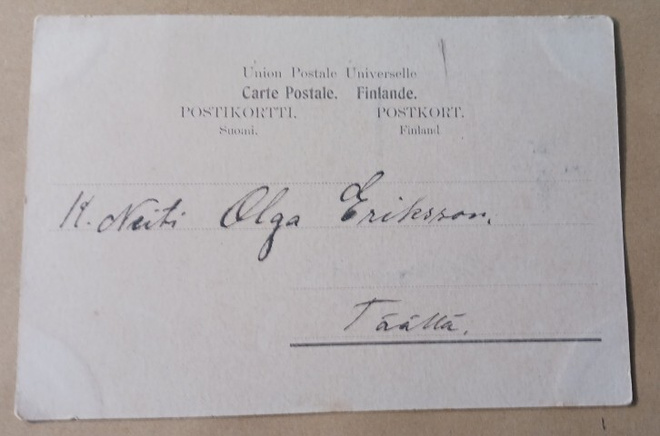 Union Postale Universelle
Carte Postale. Finlande.
POSTIKORTTI. POSTKORT.
Suomi. Finland
K. Neiti Olga Eriksson.
Täällä.